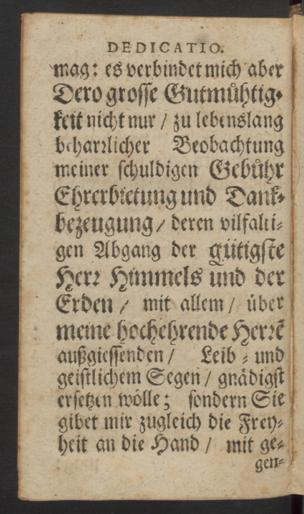 DEDICATIO.
mag: es verbindet mich aber
Dero grosse Gutmühtig-
keit nicht nur / zu lebenslang
beharzlicher Beobachtung
meiner schuldigen Gebühr
Ehrerbietung und Dank-
bezeugung / deren vilfälti-
gen Abgang der gütigste
Herz Himmels und der
Erden / mit allem / über
meine hochehrende Herrẽ
außgiessenden / Leib- und
geistlichem Segen / gnädigst
ersetzen wölle; sondern Sie
gibet mir zugleich die Frey-
heit an die Hand / mit ge-
gen-